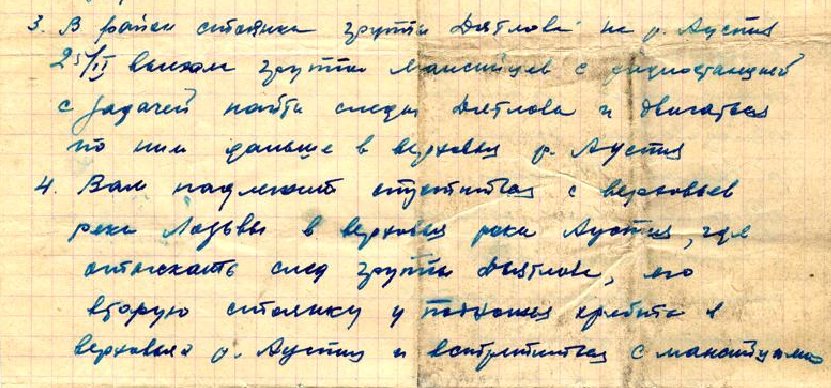 3. В район стоянки группы Дятлова на р. Ауспия
25/II выехала группа мансийцев с радиостанцией
с задачей найти следы Дятлова и двигаться
по ним дальше в верховья р. Ауспия
4. Вам надлежит спуститься с верховьев
реки Лозьвы в верховья реки Ауспия, где
отыскать след группы Дятлова, его
вторую стоянку у подножия хребта в
верховьях р. Ауспия и встретиться с мансийцами